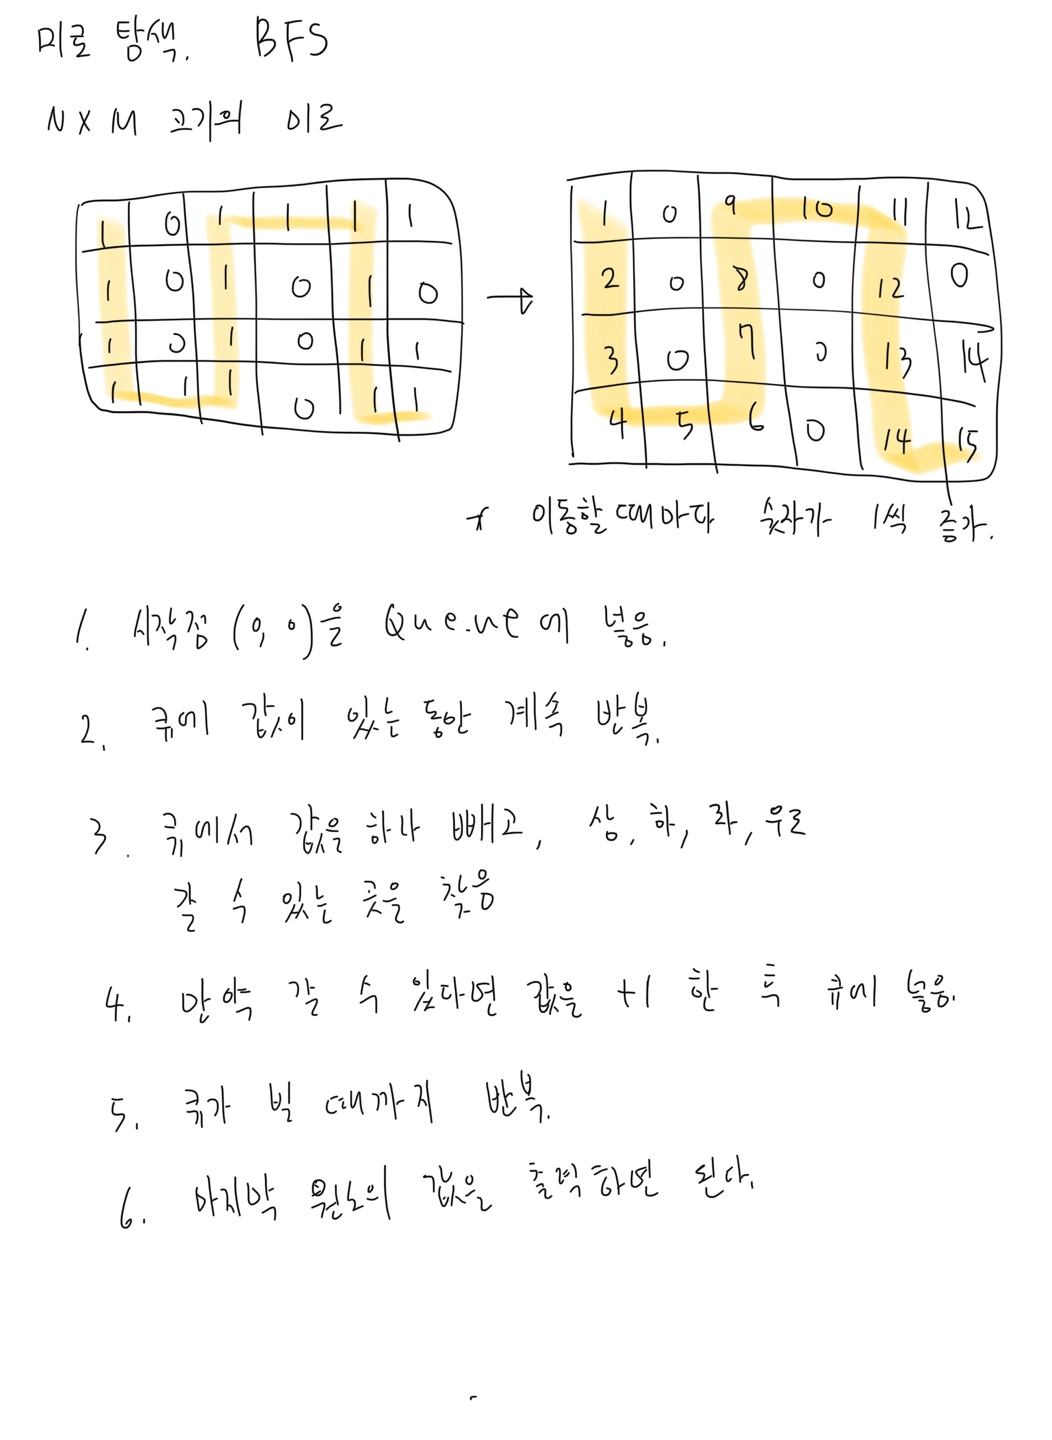 미로 탐색. BFS
N X M 크기의 미로
1 0 1 1 1 1
1 0 1 0 1 0
1 0 1 0 1 1
1 1 1 0 1 1
→
1 0 9 10 11 12
2 0 8 0 12 0
3 0 7 0 13 14
4 5 6 0 14 15
* 이동할 때마다 숫자가 1씩 증가.
1. 시작점 (0, 0)을 Queue에 넣음.
2. 큐에 값이 있는 동안 계속 반복.
3. 큐에서 값을 하나 빼고, 상, 하, 좌, 우로
갈 수 있는 곳을 찾음
4. 만약 갈 수 있다면 값을 +1 한 후 큐에 넣음.
5. 큐가 빌 때까지 반복.
6. 마지막 원소의 값을 출력하면 된다.